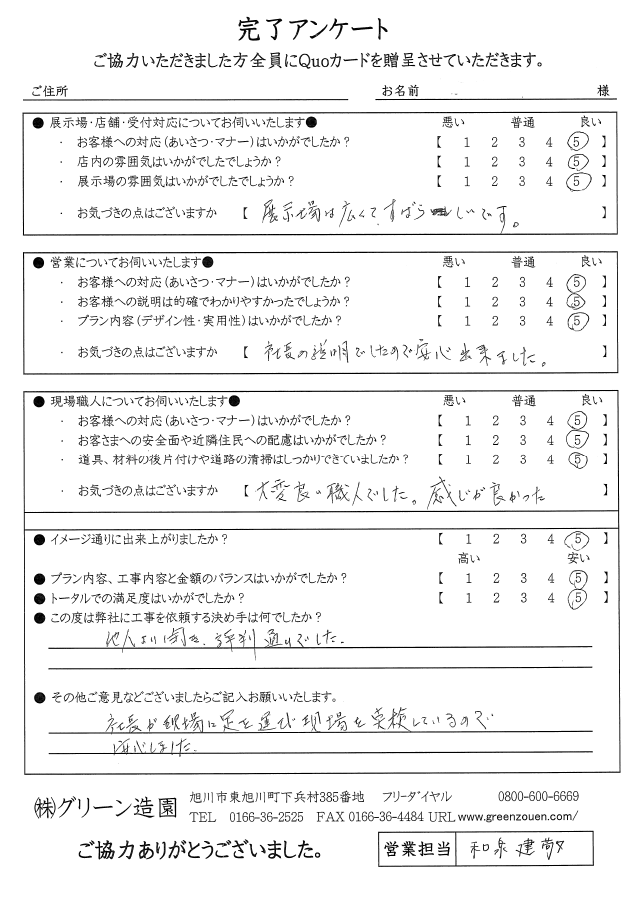 完了アンケート
ご協力いただきました方全員にQuoカードを贈呈させていただきます。
ご住所 お名前 様
● 展示場・店舗・受付対応についてお伺いいたします● 悪い 普通 良い
・ お客様への対応(あいさつ・マナー)はいかがでしたか? 【 1 2 3 4 5 】
・ 店内の雰囲気はいかがでしたでしょうか? 【 1 2 3 4 5 】
・ 展示場の雰囲気はいかがでしたでしょうか? 【 1 2 3 4 5 】
・ お気づきの点はございますか 【 展示場は広くてすばらしいです。 】
● 営業についてお伺いいたします● 悪い 普通 良い
・ お客様への対応(あいさつ・マナー)はいかがでしたか? 【 1 2 3 4 5 】
・ お客様への説明は的確でわかりやすかったでしょうか? 【 1 2 3 4 5 】
・ プラン内容(デザイン性・実用性)はいかがでしたか? 【 1 2 3 4 5 】
・ お気づきの点はございますか 【 社長の説明でしたので安心出来ました。 】
● 現場職人についてお伺いいたします● 悪い 普通 良い
・ お客様への対応(あいさつ・マナー)はいかがでしたか? 【 1 2 3 4 5 】
・ お客さまへの安全面や近隣住民への配慮はいかがでしたか? 【 1 2 3 4 5 】
・ 道具、材料の後片付けや道路の清掃はしっかりできていましたか? 【 1 2 3 4 5 】
・ お気づきの点はございますか 【 大変良い職人でした。感じが良かった 】
● イメージ通りに出来上がりましたか? 【 1 2 3 4 5 】
高い 安い
● プラン内容、工事内容と金額のバランスはいかがでしたか? 【 1 2 3 4 5 】
● トータルでの満足度はいかがでしたか? 【 1 2 3 4 5 】
● この度は弊社に工事を依頼する決め手は何でしたか?
他人より聞き、評判通りでした.
● その他ご意見などございましたらご記入お願いいたします。
社長が現場に足を運び現場を実検しているので
しました.
㈱グリーン造園 旭川市東旭川町下兵村385番地 フリーダイヤル 0800-600-6669
TEL 0166-36-2525 FAX 0166-36-4484 URL www.greenzouen.com/
ご協力ありがとうございました。 営業担当 和泉 建